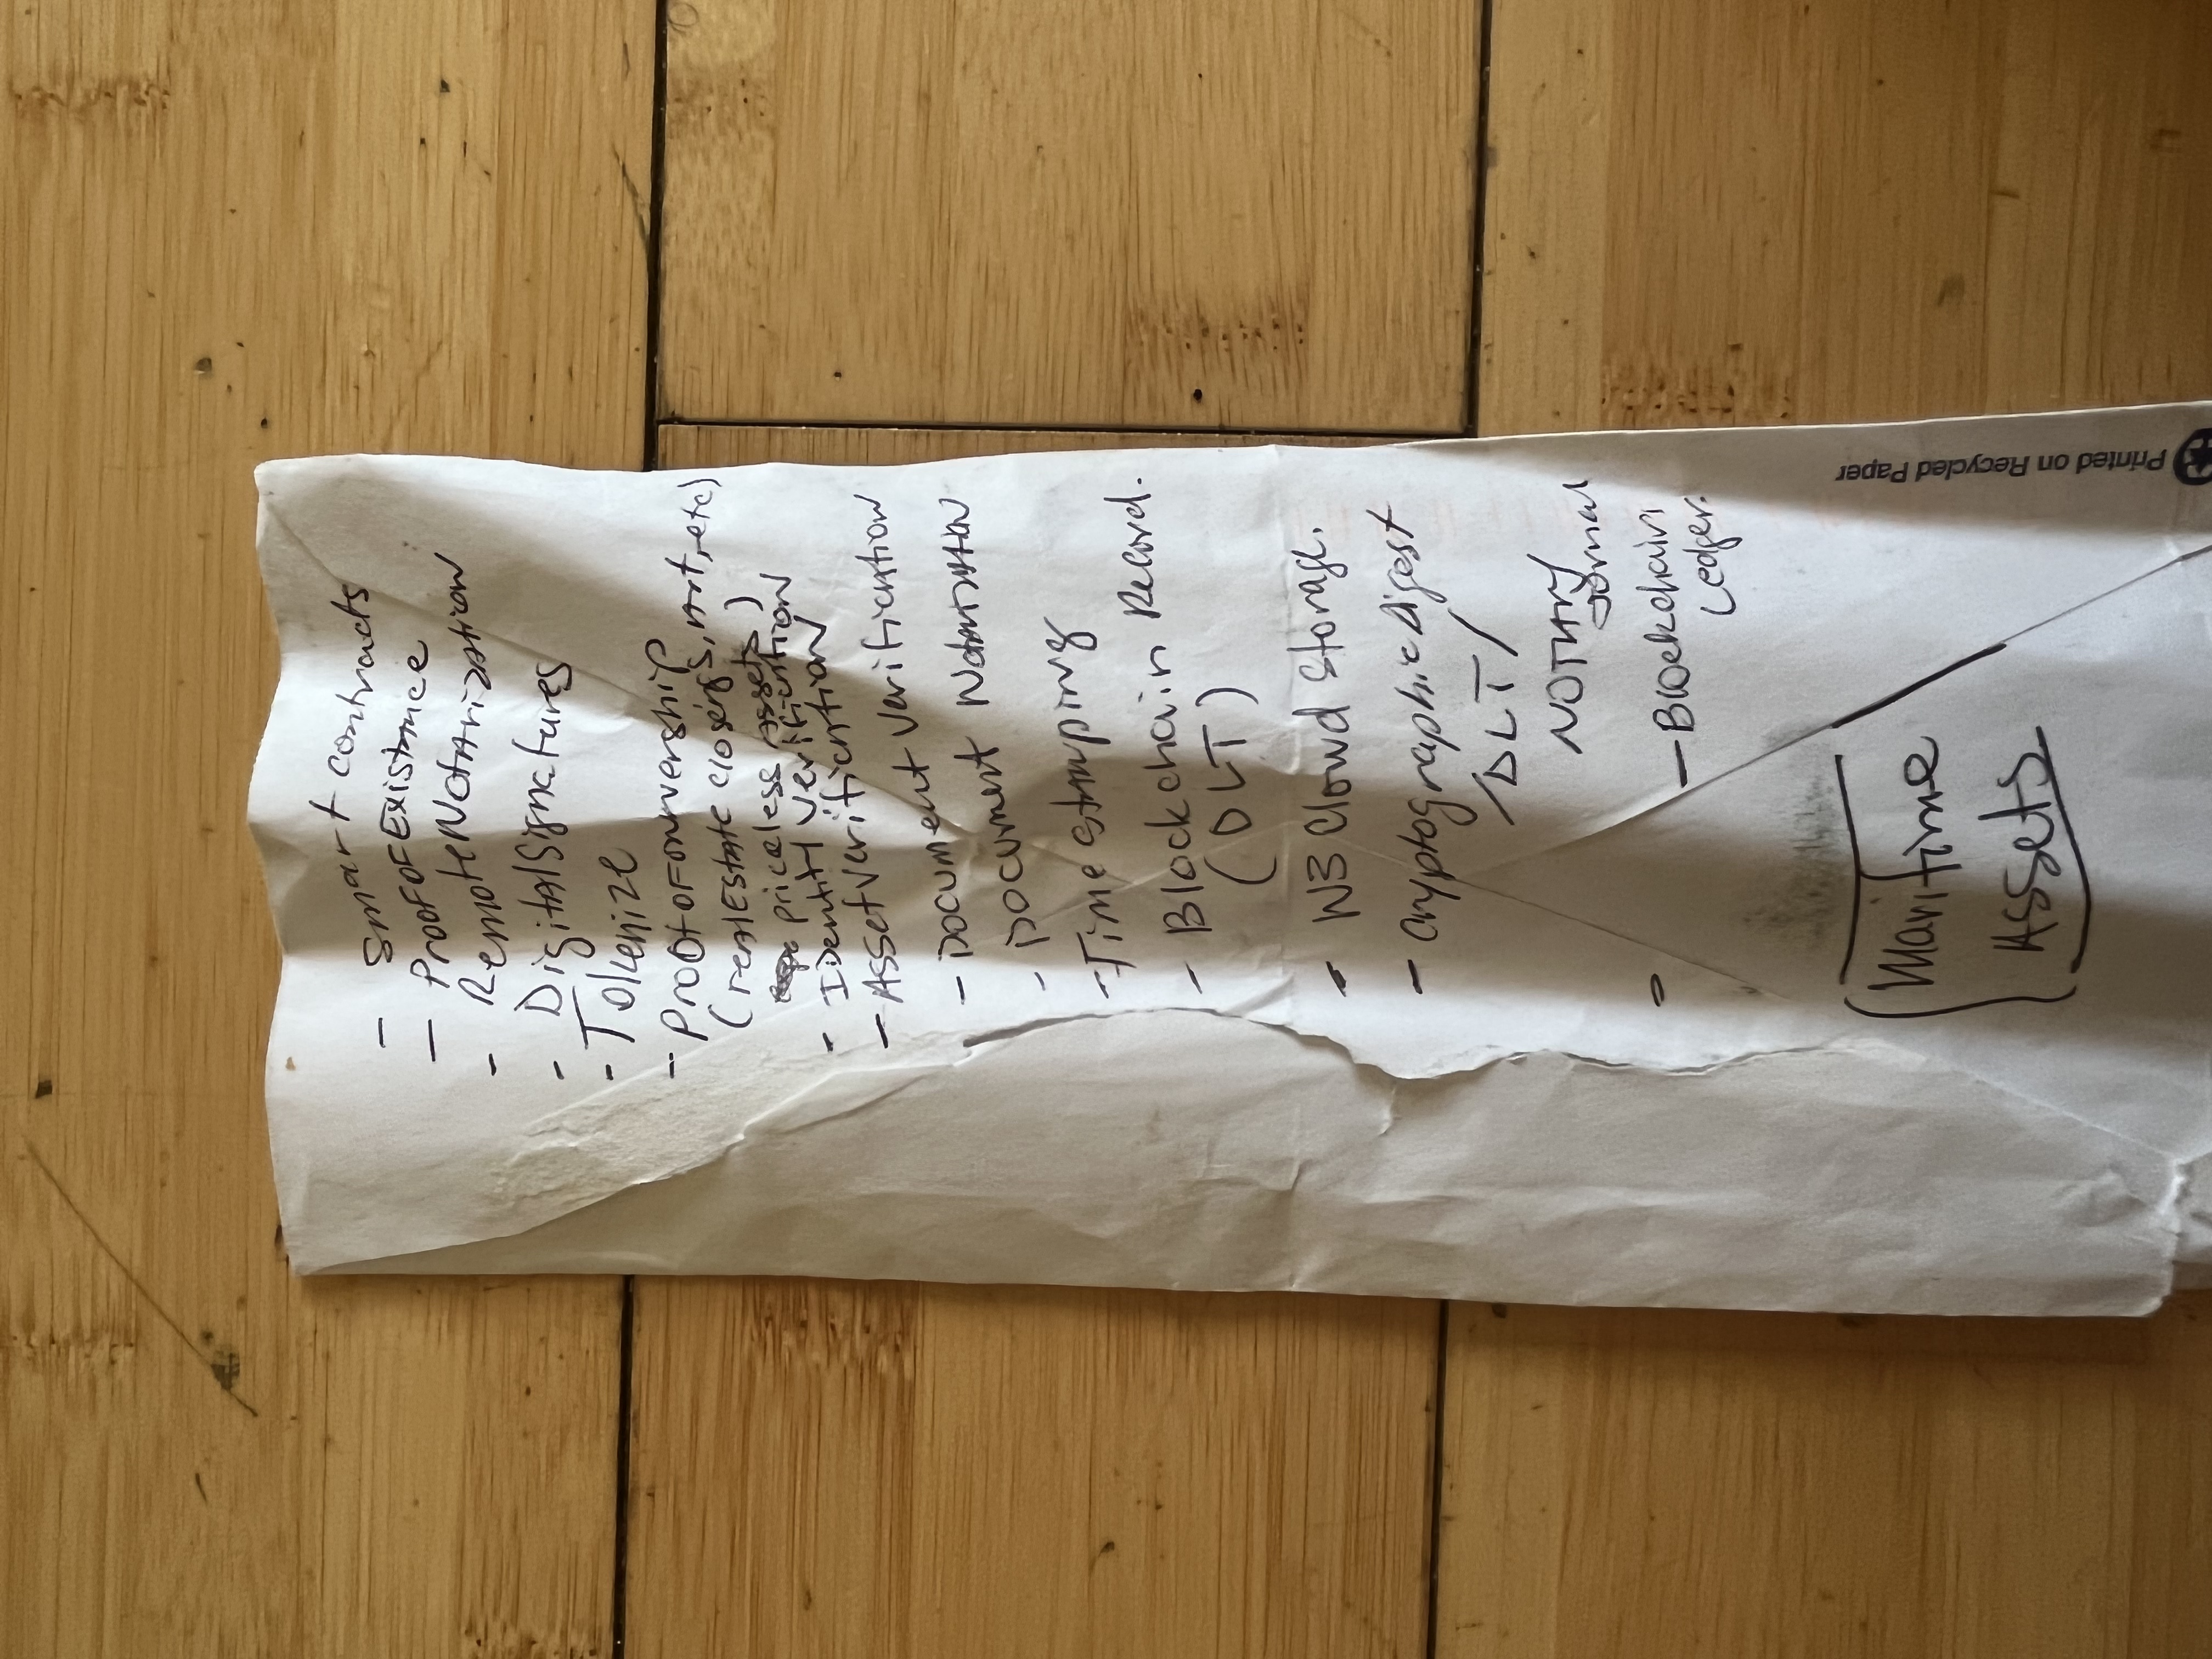 - Smart contracts
- ProofOFExistance
- RemoteNotarization
- DigitalSignatures
- Tokenize
- ProofOFOnwership
(realEstate closings, art, etc)
priceless assets)
- Identity Verification
- AssetVerification
- Document Verification
- Document Notarization
- Time stamping
- Blockchain Record.
(DLT)
- W3 Cloud Storage.
- Cryptographic digest
/DLT/
NOTARY
Journal
- Blockchain
Ledger.
Maritime
Assets
Printed on Recycled Paper